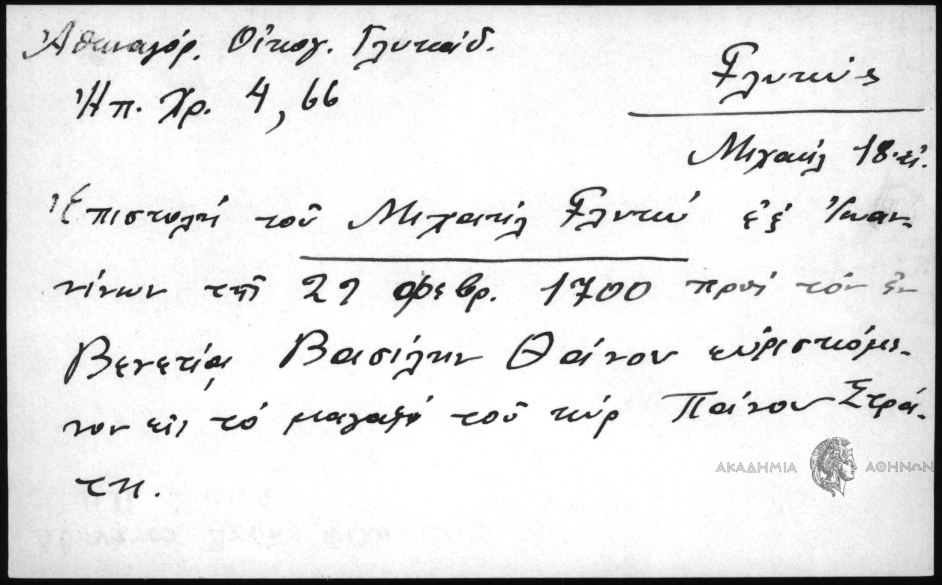 Ἀθηναγόρ. Οἰκογ. Γλυκάδ.
Ἠπ. Χρ. 4, 66
Γλυκύς
Μιχαήλ 18. αἰ.
Ἐπιστολή τοῦ Μιχαήλ Γλυκύ ἐξ Ἰωαν-
νίνων τῇ 29 φεβρ. 1700 πρός τόν ἐν
Βενετίᾳ Βασίλην Θαίνου εὑρισκόμε-
νον εἰς τό μαγαζί τοῦ κύρ Πάνου Στρά-
τη.
ΑΚΑΔΗΜΙΑ ΑΘΗΝΩΝ